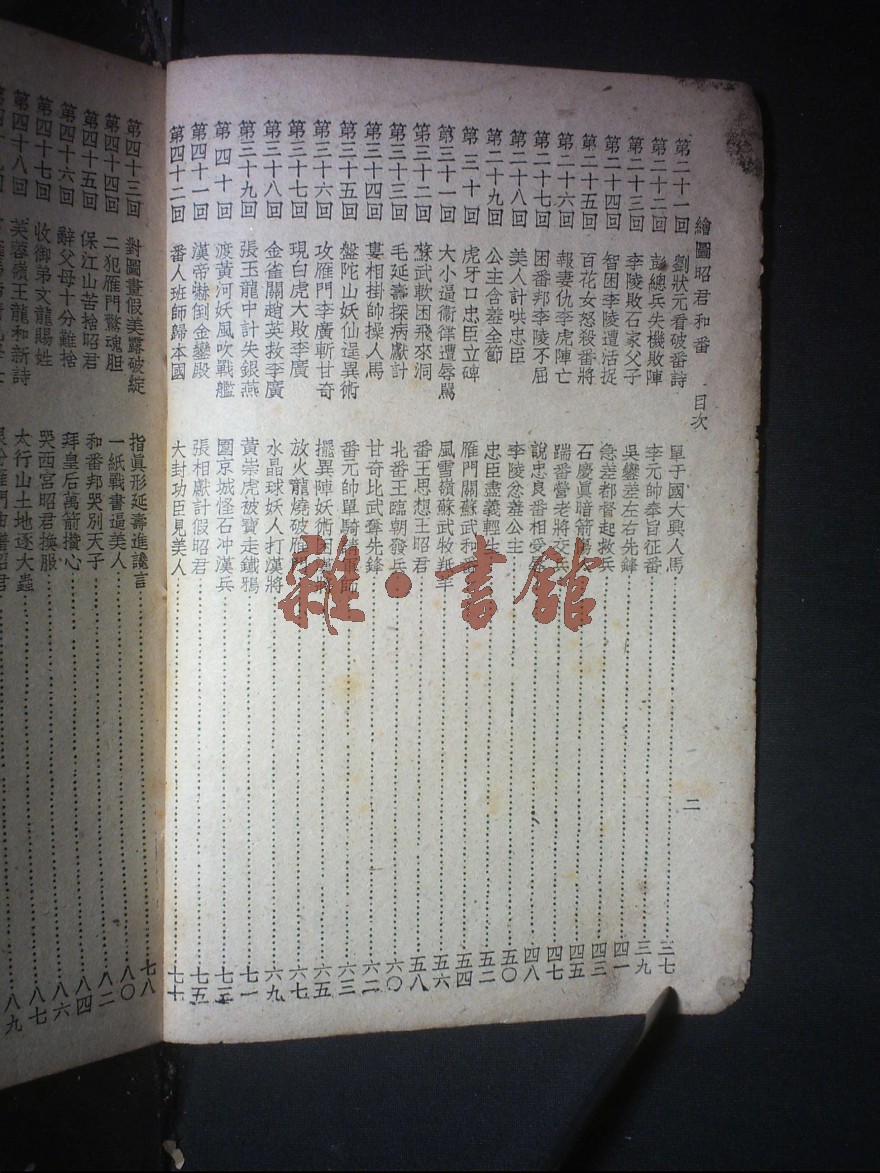 繪圖昭君和番 目次 二
第二十一回 劉狀元看破番詩 單于國大興人馬 三七
第二十二回 彭總兵失機敗陣 李元帥奉旨征番 三九
第二十三回 李陵敗石家父子 吳鑾差左右先鋒 四一
第二十四回 智困李陵遭活捉 急差都督起救兵 四三
第二十五回 百花女怒殺番將 石慶真暗箭 四五
第二十六回 報妻仇李虎陣亡 踹番營老將交兵 四七
第二十七回 困番邦李陵不屈 說忠良番相受 四八
第二十八回 美人計哄忠臣 李陵忿羞公主 五〇
第二十九回 公主含羞全節 忠臣盡義輕 五二
第三十回 虎牙口忠臣立碑 雁門關蘇武和番 五四
第三十一回 大小逼衞律遭辱罵 風雪嶺蘇武牧羝羊 五六
第三十二回 蘇武軟困飛來洞 番王思想王昭君 五八
第三十三回 毛延壽探病獻計 北番王臨朝發兵 六〇
第三十四回 婁相掛帥操人馬 甘奇比武奪先鋒 六二
第三十五回 盤陀山妖仙逞異術 番元帥單騎請軍師 六三
第三十六回 攻雁門李廣斬甘奇 擺異陣妖術 六五
第三十七回 現白虎大敗李廣 放火龍燒破雁門 六七
第三十八回 金雀關趙英救李廣 水晶球妖人打漢將 六九
第三十九回 張玉龍中計失銀燕 黃崇虎被寶走鐵鴉 七一
第四十回 渡黃河妖風吹戰艦 圍京城怪石冲漢兵 七三
第四十一回 漢帝嚇倒金鑾殿 張相獻計假昭君 七五
第四十二回 番人班師歸本國 大封功臣見美人 七十
第四十三回 對圖畫假美露破綻 指眞形延壽進讒言 七八
第四十四回 二犯雁門驚魂胆 一紙戰書逼美人 八〇
第四十五回 保江山苦捨昭君 和番邦哭別天子 八二
第四十六回 辭父母十分難捨 拜皇后萬箭攢心 八四
第四十七回 收御弟文龍賜姓 哭西宮昭君換服 八六
第四十八回 芙蓉嶺王龍和新詩 太行山土地逐大蟲 八七
八九
雜·書館